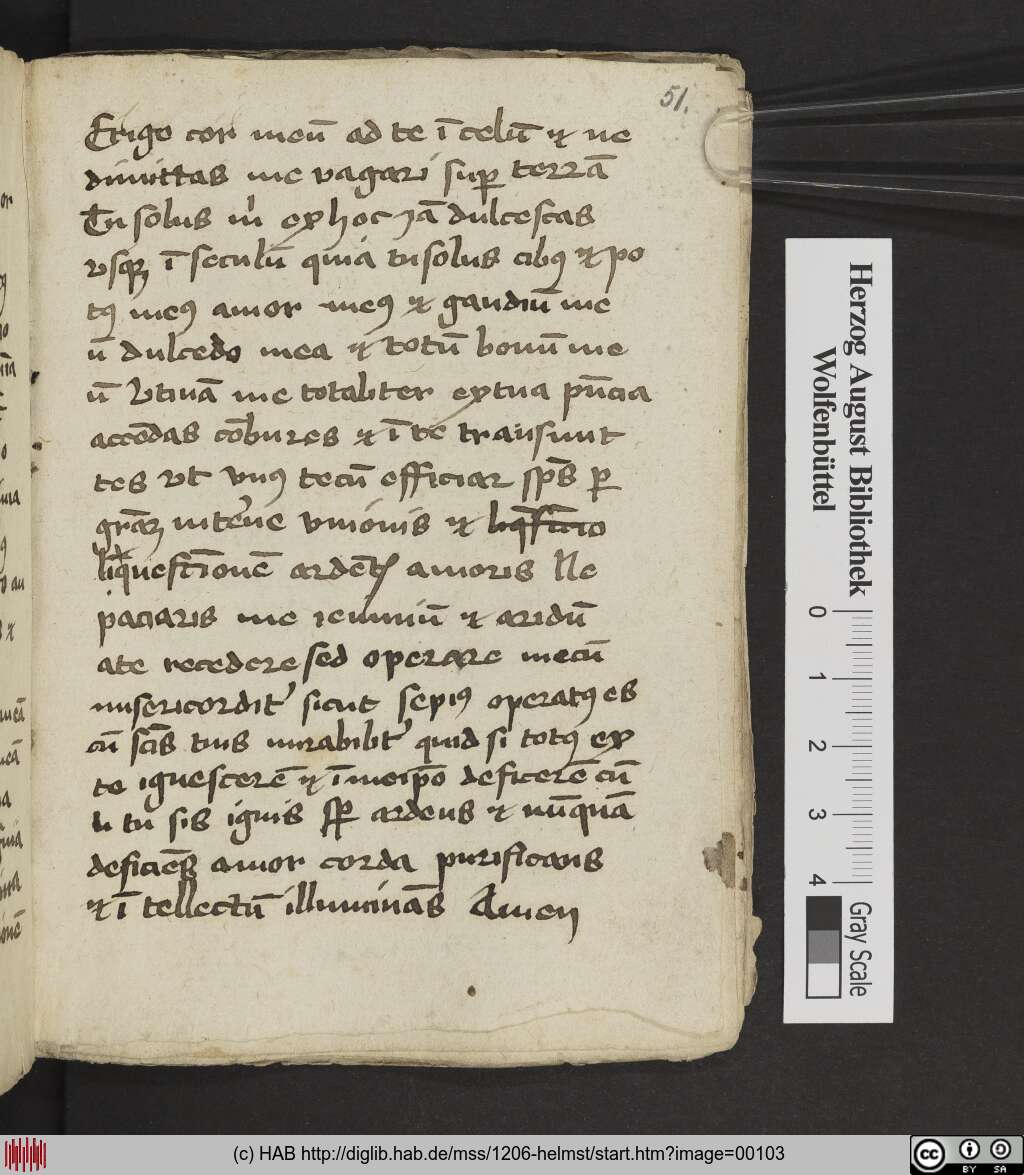 51.
Erigo cor meū ad te ī celū et ne
dimittas me vagari sup terrā
Tu solus m̄ ex hoc iā dulcescas
vsqꝫ ī seculū quia tu solus cibꝰ et po
tꝰ meꝰ amor meꝰ et gaudiū me
ū dulcedo mea et totū bonū me
ū Vtinā me totaliter ex tua pn̄cia
accēdas cōbures et ī te transmut
tes vt vnꝰ tecū efficiar sp̄s ꝑ
gr̄aꝫ int̄ne vnionis et
liq̄uefct̄ionē ardēt amoris Ne
paciaris me ieiuniū et aridū
a te recedere sed operare mecū
misericordit sicut sepiꝰ operatꝰ es
cū sc̄is tuis mirabilit quid si totꝰ ex
te ignescerē et ī meip̄o deficerē cū
tu sis ignis sp̄ ardens et nū̄quā
deficiens amor corda purificans
et ītellectū illuminās Amen
Herzog August Bibliothek
Wolfenbüttel
0 1 2 3 4
Gray Scale
(c) HAB http://diglib.hab.de/mss/1206-helmst/start.htm?image=00103
cc BY SA